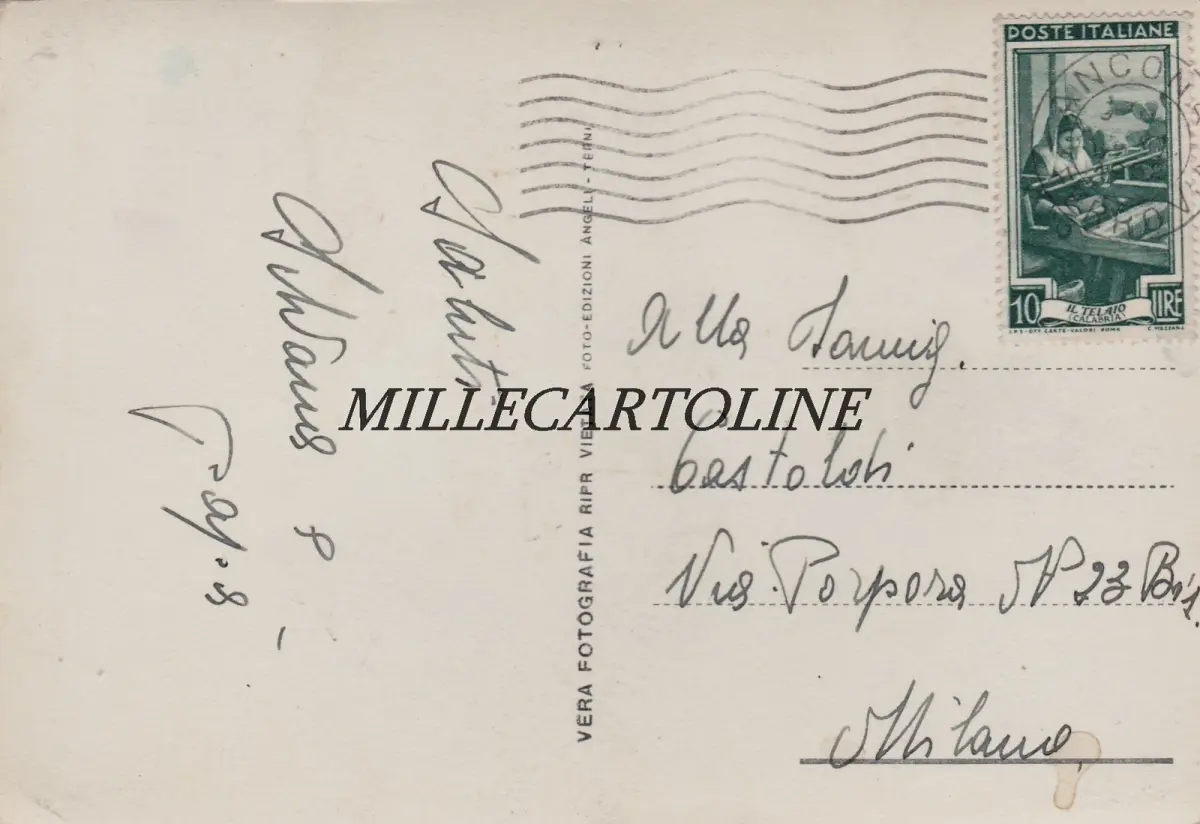 POSTE ITALIANE
ANCONA
10 LIRE
IL TELAIO
(CALABRIA)
I.P.S.-OFF. CARTE-VALORI-ROMA C. MEZZANA
Saluti
Silvana e
Papà
VERA FOTOGRAFIA RIPR VIETATA FOTO-EDIZIONI ANGELI - TERNI
MILLECARTOLINE
Alla Famig.
Castoldi
Via Porpora N° 23 Bis.
Milano